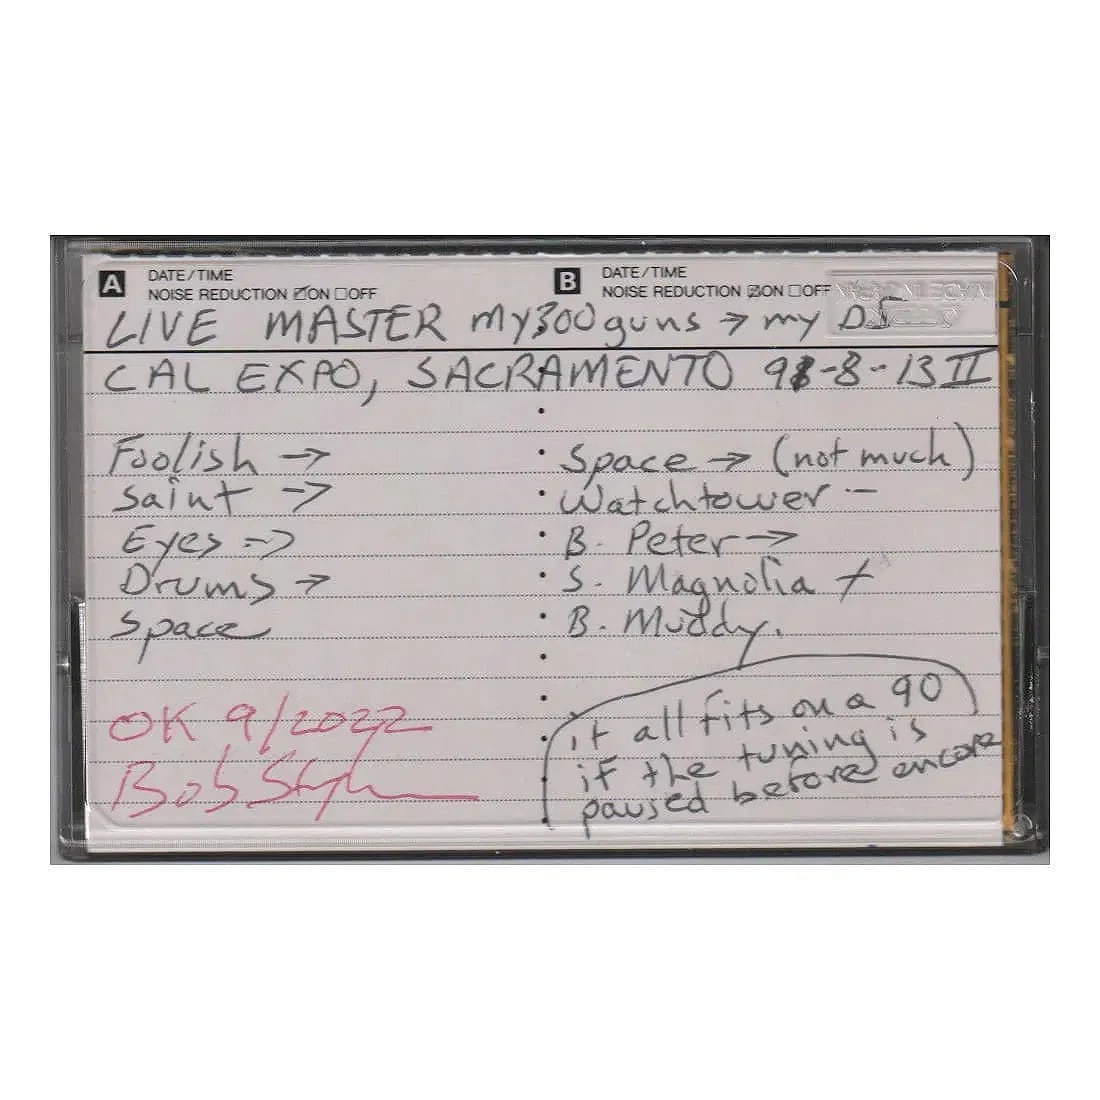 A DATE/TIME
NOISE REDUCTION ☑ON ☐OFF
B DATE/TIME
NOISE REDUCTION ☑ON ☐OFF
LIVE MASTER my 300 guns → my D5
CAL EXPO, SACRAMENTO 91-8-13 II
Foolish →
Saint →
Eyes →
Drums →
Space
Space → (not much)
Watchtower –
B. Peter →
S. Magnolia +
B. Muddy.
it all fits on a 90
if the tuning is
paused before encore
OK 9/2022
Bob